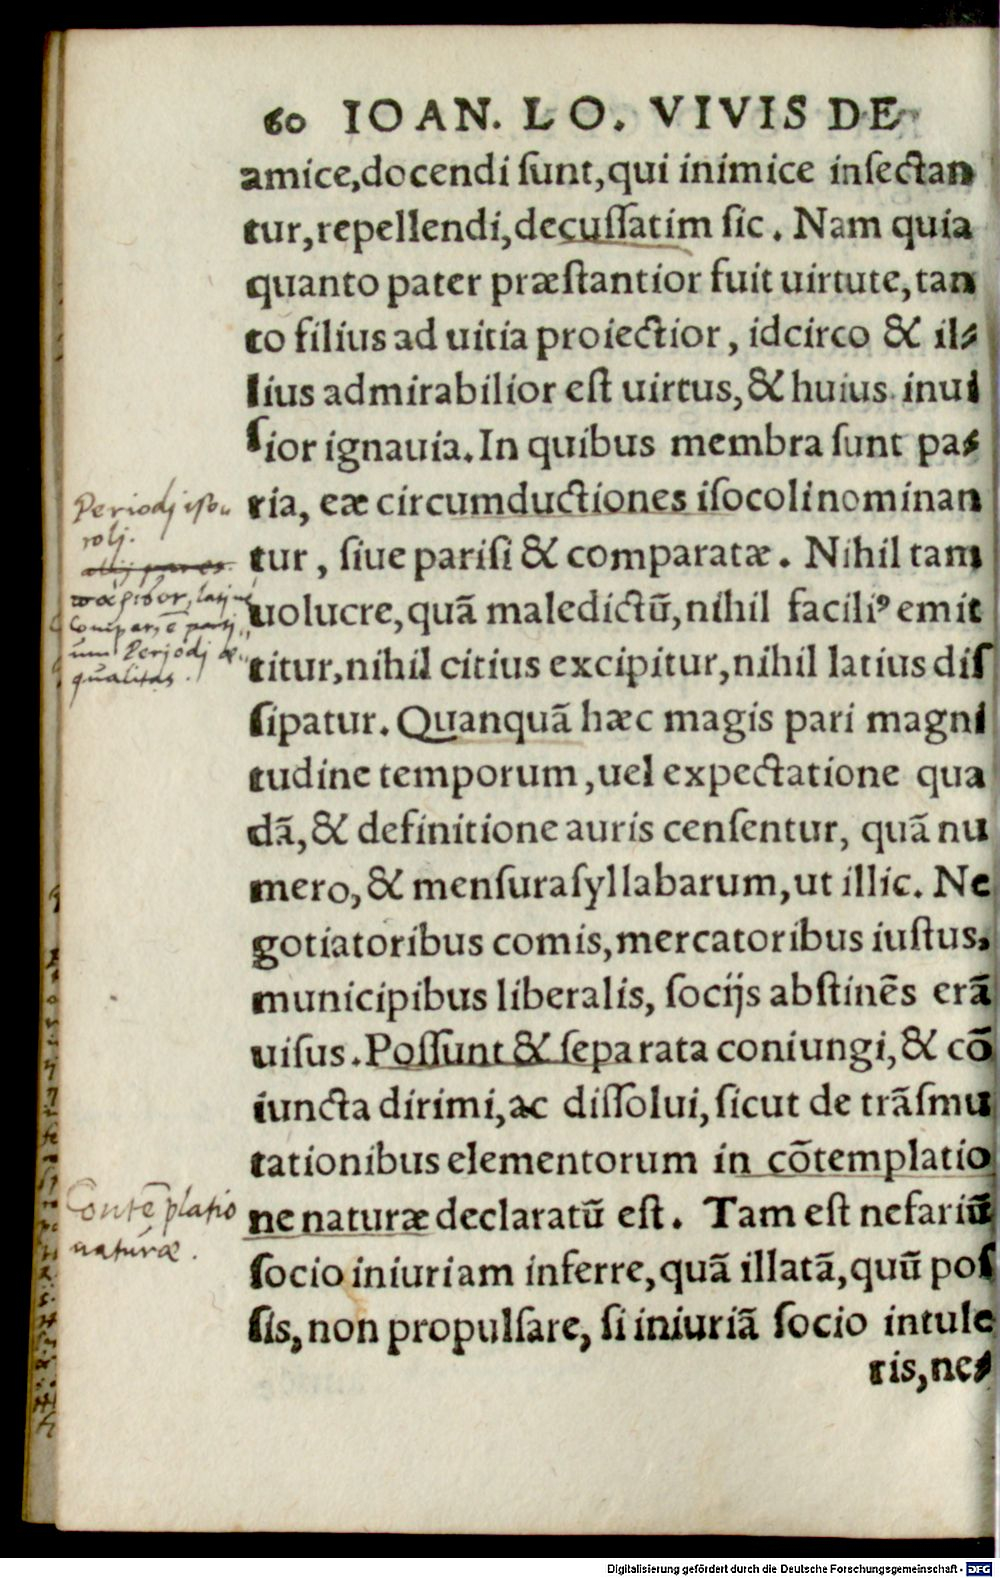 60 IOAN. LO. VIVIS DE
amice,docendi ſunt,qui inimice inſectan
tur,repellendi,decuſſatim ſic. Nam quia
quanto pater præſtantior fuit uirtute,tan
to filius ad uitia proiectior, idcirco & il⸗
lius admirabilior eſt uirtus,& huius inui
ſior ignauia. In quibus membra ſunt pa⸗
ria, eæ circumductiones iſocoli nominan
tur, ſiue pariſi & comparatæ. Nihil tam
uolucre,quã maledictũ,nihil faciliꝰ emit
titur,nihil citius excipitur,nihil latius diſ
ſipatur. Quanquã hæc magis pari magni
tudine temporum,uel expectatione qua
dã,& definitione auris cenſentur, quã nu
mero,& menſura ſyllabarum,ut illic. Ne
gotiatoribus comis,mercatoribus iuſtus,
municipibus liberalis, ſocijs abſtinẽs erã
uiſus. Poſſunt & ſeparata coniungi,& cõ
iuncta dirimi,ac diſſolui,ſicut de trãſmu
tationibus elementorum in cõtemplatio
ne naturæ declaratũ eſt. Tam eſt nefariũ
ſocio iniuriam inferre,quã illatã,quũ poſ
ſis,non propulſare, ſi iniuriã ſocio intule
ris,ne⸗
Periodj
latine
Periodj æ-
qualitas.
Contẽplatio
naturæ.
Digitalisierung gefördert durch die Deutsche Forschungsgemeinschaft - DFG